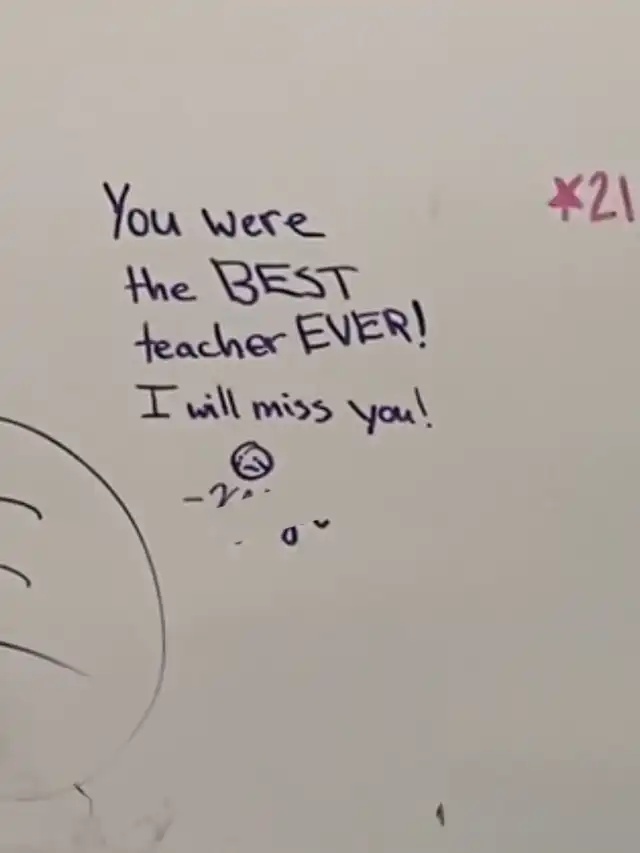 You were
the BEST
teacher EVER!
I will miss you!
21